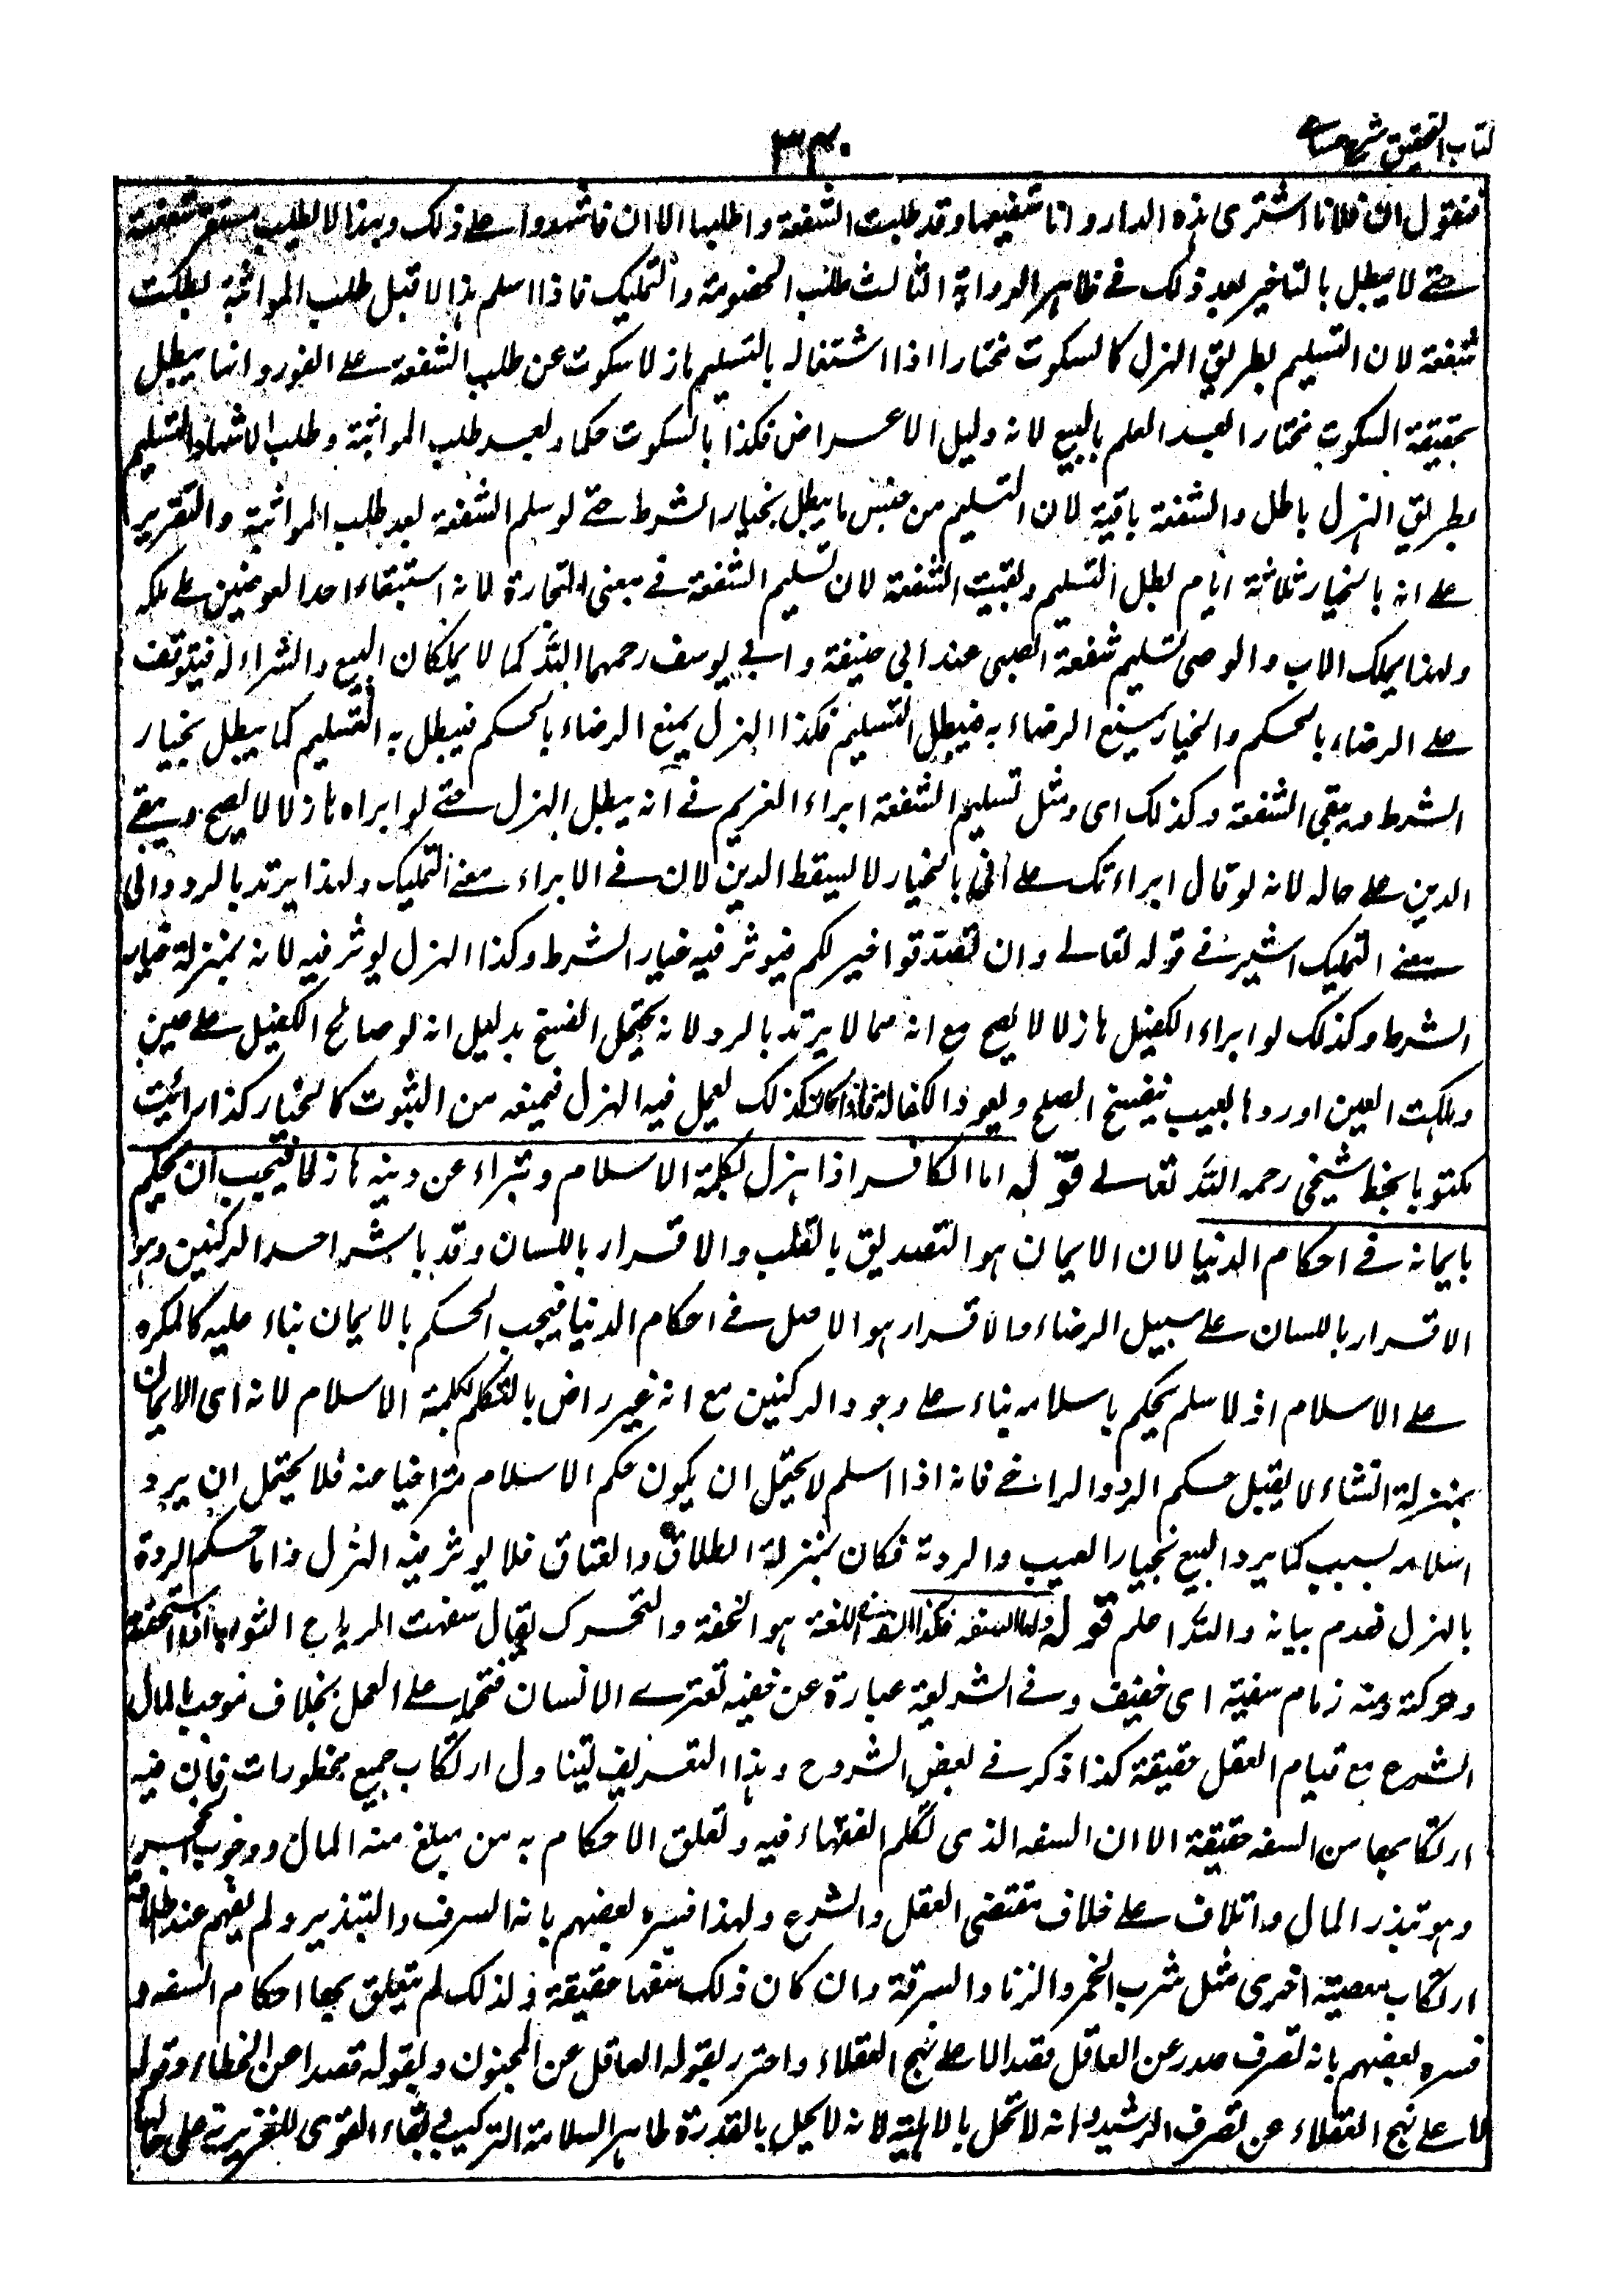 كتاب التحقيق شرح حسامى
٣٣٠
فنقول ان فلانا اشترى هذه الدار وانا شفيعها وقد طلبت الشفعة واطلبها الا ان فاشهدوا على ذلك وبهذا لا لطلب يستقر شفعته
حتى لا يبطل بالتاخير بعد ذلك فى ظاهر الرواية الثالث طلب الخصومة والتمليك فاذا سلم هازلا قبل طلب المواثبة بطلت
شفعة لان التسليم بطريق الهزل كالسكوت مختارا اذا اشتغاله بالتسليم هازلا سكوت عن طلب الشفعة على الفور وانها يبطل
بحقيقة السكوت مختارا بعد العلم بالبيع لانه دليل الاعراض فكذا بالسكوت حكما وبعد طلب المواثبة وطلب الاشهاد التسليم
بطريق الهزل باطل والشفعة باقية لان التسليم من جنس ما يبطل بخيار الشرط حتى لو سلم الشفعة بعد طلب المواثبة والتقرير
على انه بالخيار ثلاثة ايام بطل التسليم وبقيت الشفعة لان تسليم الشفعة فى معنى التجارة لانه استبقاء احد العوضين على ملكه
ولهذا يملك الاب والوصى تسليم شفعة الصبى عند ابى حنيفة وابى يوسف رحمهما الله كما لا يملكان البيع والشراء له فيتوقف
على الرضاء بالحكم والخيار يمنع الرضاء به فيبطل التسليم فكذا الهزل يمنع الرضاء بالحكم فيبطل به التسليم كما يبطل بخيار
الشرط ويبقى الشفعة وكذلك اى ومثل تسليم الشفعة ابراء الغريم فى انه يبطل الهزل حتى لو ابراه هازلا لا يصح ويبقى
الدين على حاله لانه لو قال ابراءتك على انى بالخيار لا يسقط الدين لان فى الابراء معنى التمليك ولهذا يرتد بالرد والى
معنى التمليك اشير فى قوله تعالى وان تصدقوا خير لكم فيوثر فيه خيار الشرط وكذا الهزل يوثر فيه لانه بمنزلة خيار
الشرط وكذلك لو ابراء الكفيل هازلا لا يصح مع انه مما لا يرتد بالرد لانه يحتمل الفسخ بدليل انه لو صالح الكفيل على عين
وهلكت العين او ردها بعيب ينفسخ الصلح ويعود الكفالة فاذا كان كذلك يعمل فيه الهزل فيمنعه من الثبوت كالخيار كذا رائيت
مكتوبا بخط شيخى رحمه الله تعالى قوله اما الكافر اذا هزل بكلمة الاسلام وتبراء عن دينه هازلا فيجب ان يحكم
بايمانه فى احكام الدنيا لان الايمان هو التصديق بالقلب والاقرار باللسان وقد باشر احد الركنين وهو
الاقرار باللسان على سبيل الرضاء والاقرار هو الاصل فى احكام الدنيا فيجب الحكم بالايمان بناء عليه كالمكره
على الاسلام اذ لا سلم يحكم باسلامه بناء على وجود الركنين مع انه غير راض بالتكلم بكلمة الاسلام لانه اى الايمان
بمنزلة انشاء لا يقبل حكم الرد والراخى فانه اذا اسلم لا يحتمل ان يكون حكم الاسلام متراخيا عنه فلا يحتمل ان يرد
اسلامه بسبب كما يرد البيع بخيار العيب والردية فكان بمنزلة الطلاق والعتاق فلا يوثر فيه الهزل واما حكم الردة
بالهزل فقدم بيانه والله اعلم قوله واما السفه فكذا السفه فى اللغة هو الخفة والتحرك يقال سفهت الرياح الثوب اذا استخفته
وحركته ومنه زمام سفيه اى خفيف وفى الشريعة عبارة عن خفيه تعترى الانسان فتحمله على العمل بخلاف موجب المال
الشرع مع قيام العقل حقيقة كذا ذكر فى بعض الشروح وهذا التعريف يتناول ارتكاب جميع محظورات فان فيه
ارتكابها من السفه حقيقة الا ان السفه الذى تكلم الفقهاء فيه وتعلق الاحكام به من مبلغ منه المال ووجوب الحجر
وهو تبذر المال واتلاف على خلاف مقتضى العقل والشرع ولهذا فسره بعضهم بانه السرف والتبذير ولم يفهم عند اطلاقه
ارتكاب معصية اخرى مثل شرب الخمر والزنا والسرقة وان كان ذلك سفها حقيقة ولذلك لم يتعلق بها احكام السفه و
فسره بعضهم بانه تصرف صدر عن العاقل قصدا لا على نهج العقلاء واحترز بقوله العاقل عن المجنون وبقوله قصدا عن الخطاء وقوله
لا على نهج العقلاء عن تصرف الرشيد وانه لا تخل بالاهلية لانه لا يخل بالقدرة ظاهرا لسلامة التركيب وبقاء القوى الغريزية على حالها